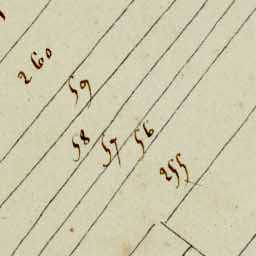 260
59
58
57
56
255